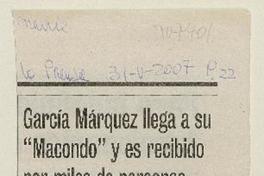 La Prensa 31-V-2007 P.22
García Márquez llega a su
“Macondo” y es recibido
por miles de personas